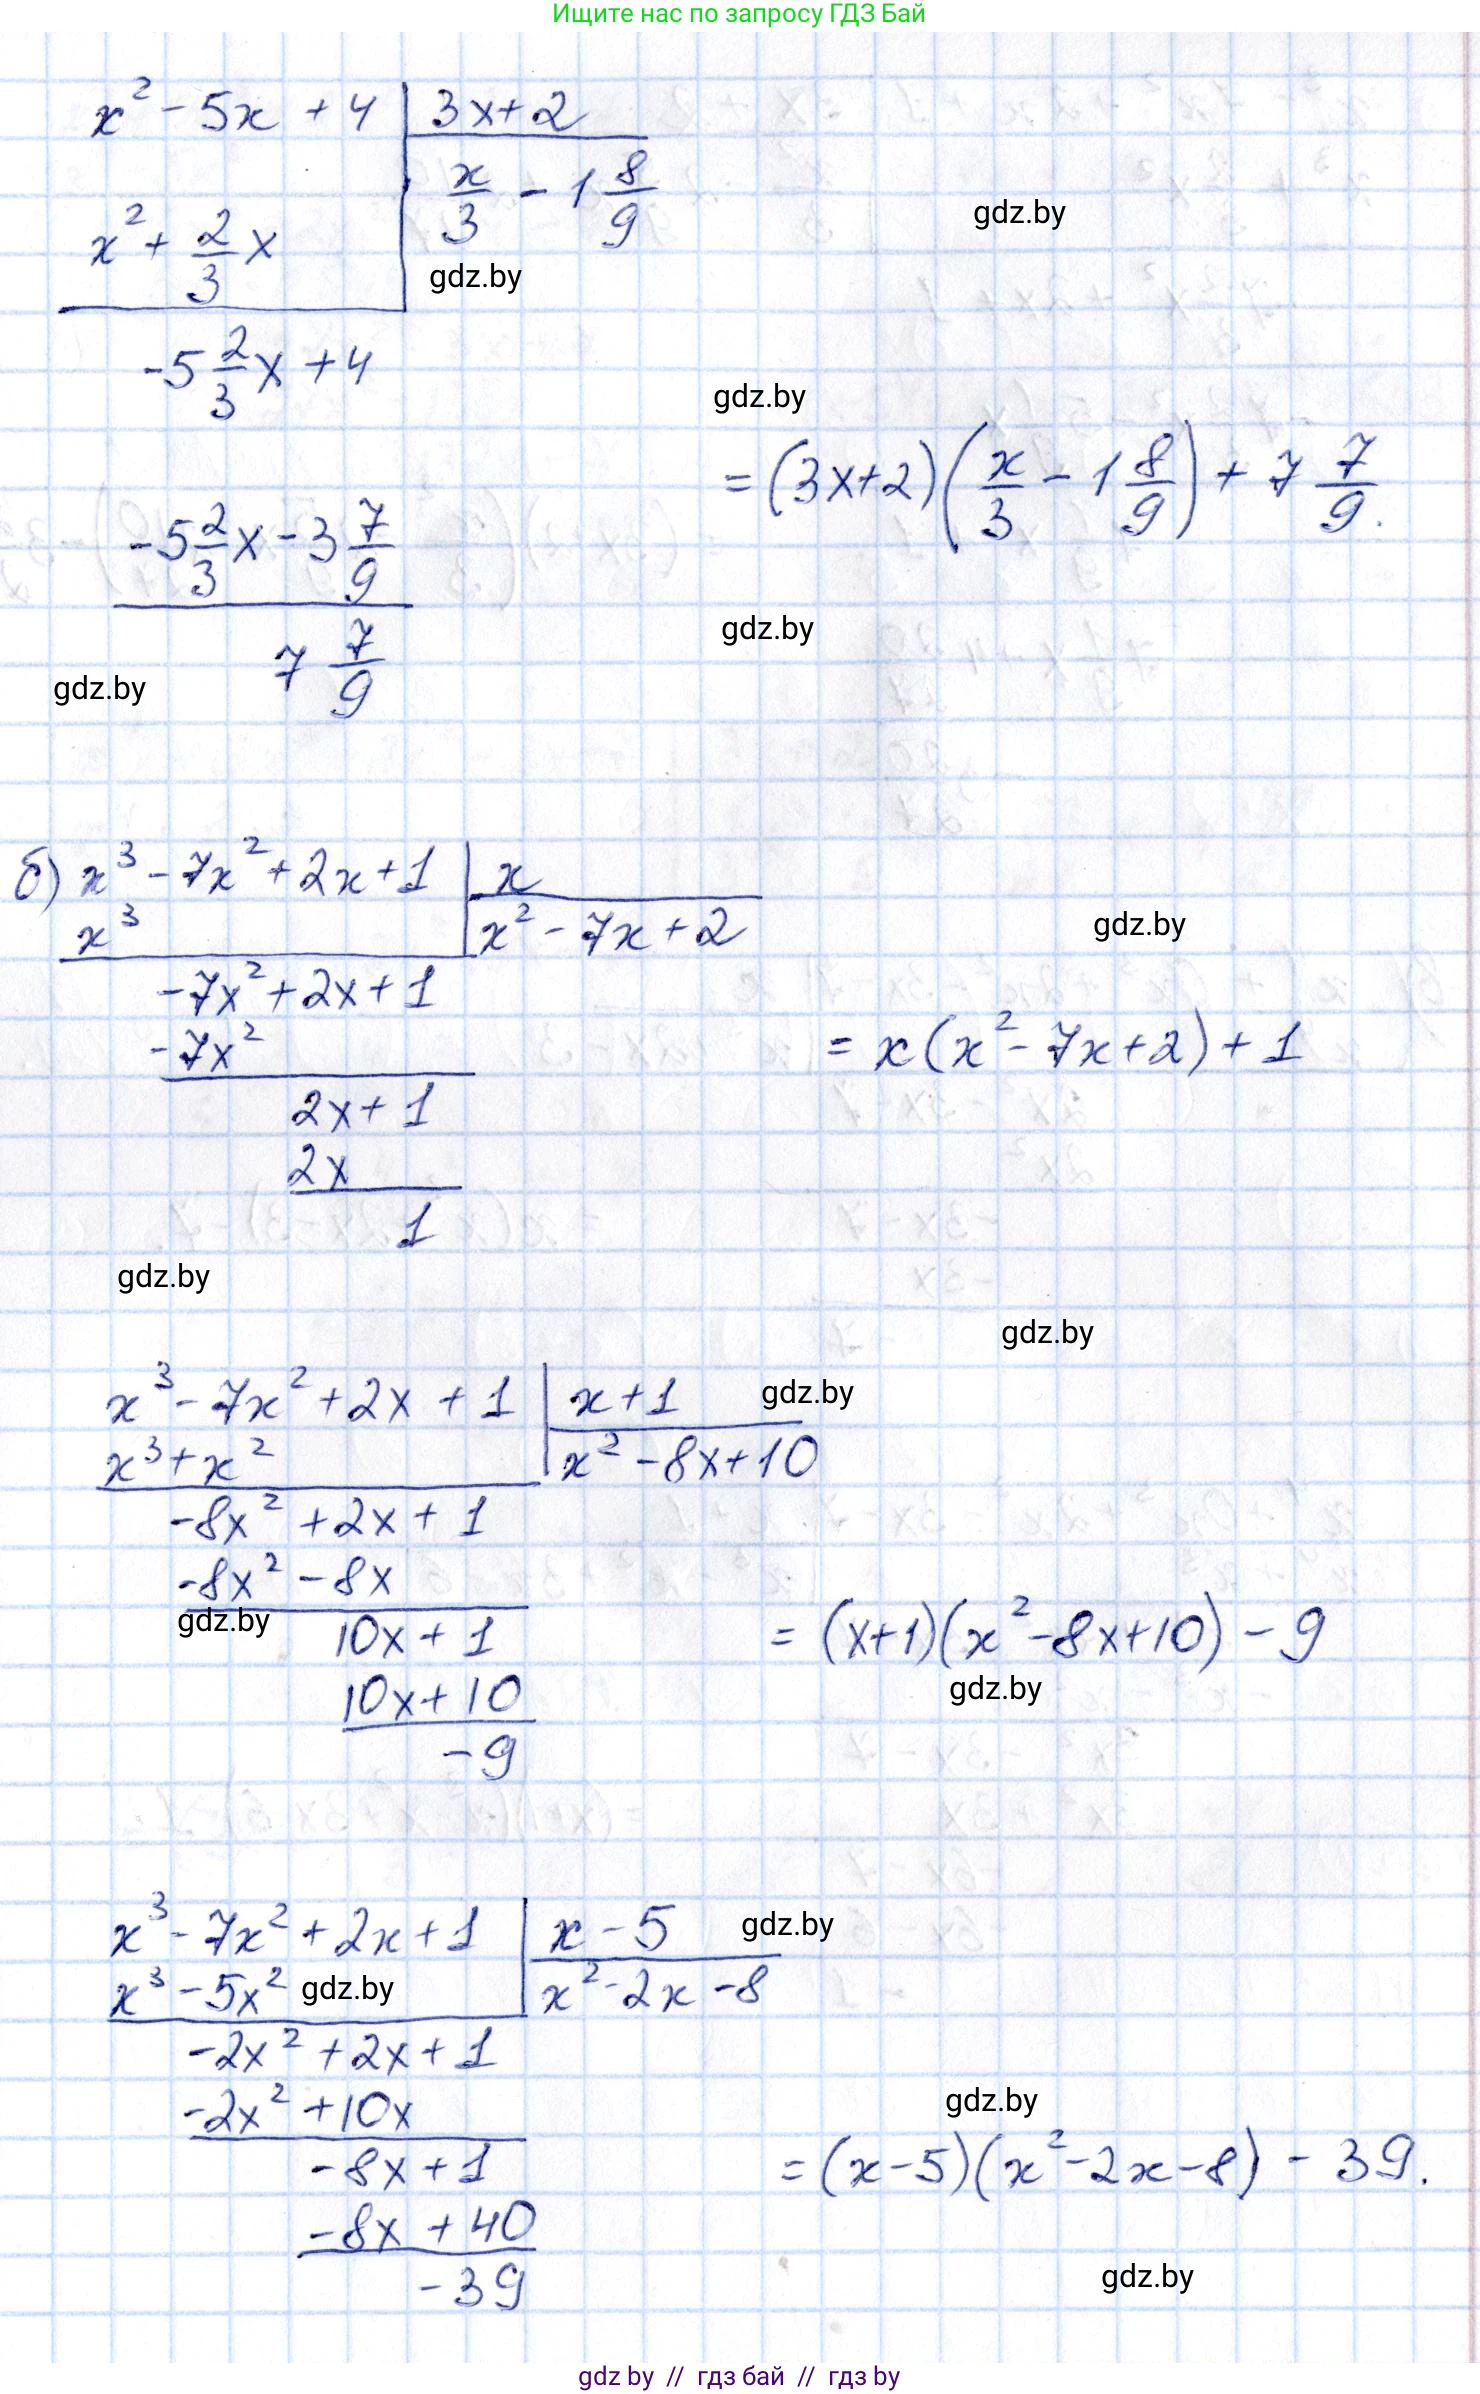 Ищите нас по запросу ГДЗ Бай
x² - 5x + 4 | 3x+2
x² + 2/3 x | x/3 - 1 8/9
gdz.by
gdz.by
-5 2/3 x + 4
gdz.by
-5 2/3 x - 3 7/9
= (3x+2)(x/3 - 1 8/9) + 7 7/9.
gdz.by
7 7/9
gdz.by
б) x³ - 7x² + 2x + 1 | x
x³ | x² - 7x + 2
gdz.by
-7x² + 2x + 1
-7x²
= x(x² - 7x + 2) + 1
2x + 1
2x
1
gdz.by
gdz.by
x³ - 7x² + 2x + 1 | x + 1
gdz.by
x³ + x² | x² - 8x + 10
-8x² + 2x + 1
-8x² - 8x
gdz.by
10x + 1
= (x+1)(x² - 8x + 10) - 9
gdz.by
10x + 10
-9
x³ - 7x² + 2x + 1 | x - 5
gdz.by
x³ - 5x² | x² - 2x - 8
gdz.by
-2x² + 2x + 1
-2x² + 10x
gdz.by
-8x + 1
= (x-5)(x² - 2x - 8) - 39.
-8x + 40
-39
gdz.by
gdz by // гдз бай // гдз by